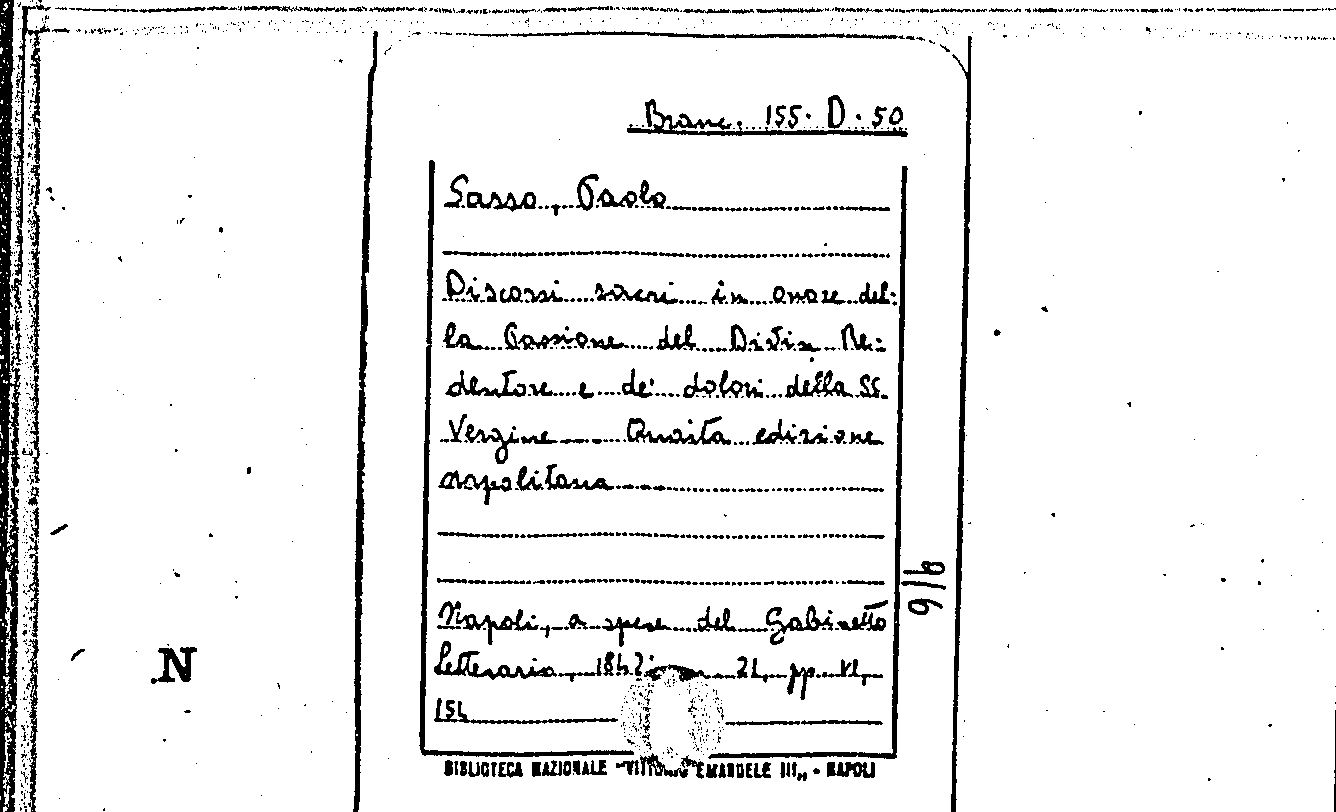 Branc. 155. D. 50
Sasso, Paolo
Discorsi sacri in onore del=
la Passione del Divin Re=
dentore e de' dolori della SS.
Vergine. Quarta edizione
napolitana
Napoli, a spese del Gabinetto
Letterario, 1842, 21, pp. VI,
154
BIBLIOTECA NAZIONALE "VITTORIO EMANUELE III„ - NAPOLI
N